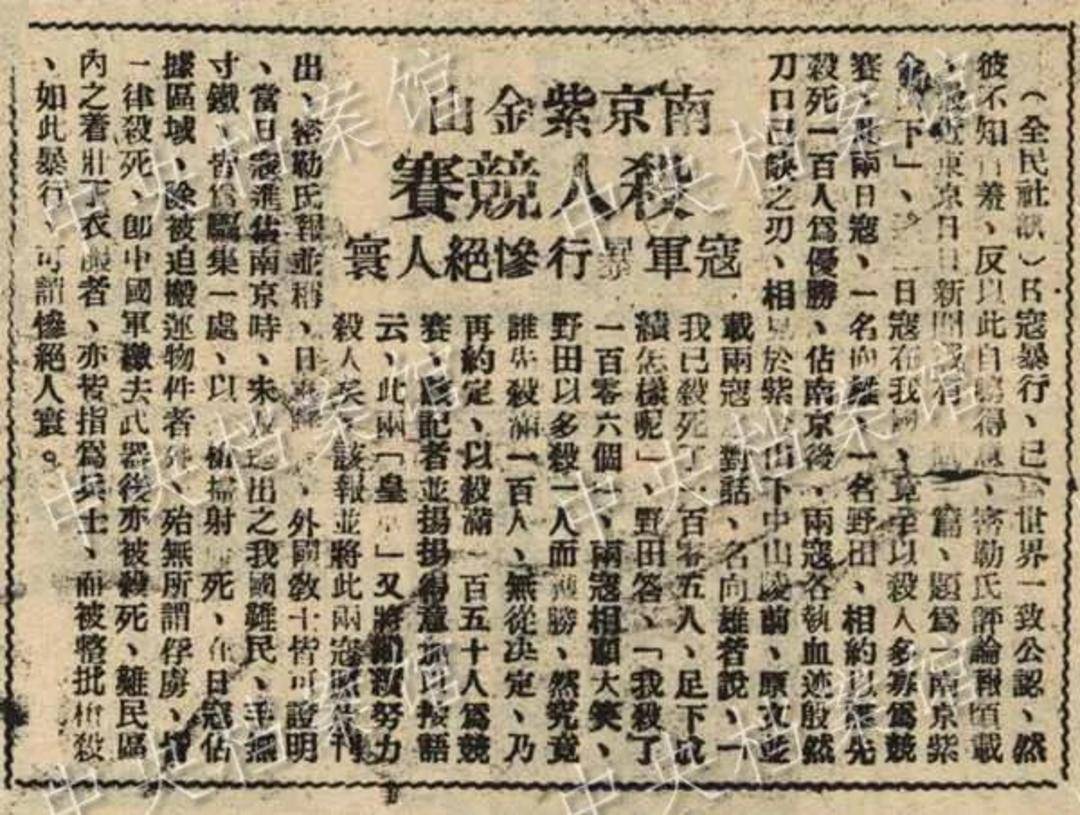 南京紫金山
殺人競賽
寇軍暴行慘絕人寰
(全民社訊)日寇暴行、已 世界一致公認、然
彼不知 羞、反以此自鳴得意、密勒氏評論報頃載
、最近東京日日新聞載有 篇、題為「南京紫
金 下」、 日寇在我國、竟 以殺人多寡為競
賽、此兩日寇、一名向雄、一名野田、相約以 先
殺死一百人為優勝、佔南京後、兩寇各執血迹殷然
刀口已缺之刃、相見於紫金山下中山陵前、原文並
載兩寇 對話、名向雄者說、「
我已殺死了一百零五人、足下成
績怎樣呢」、野田答、「我殺了
一百零六個」、兩寇相顧大笑、
野田以多殺一人而 勝、然究竟
誰先殺滿一百人、無從決定、乃
再約定、以殺滿一百五十人為競
賽、 記者並揚揚得意加以按語
云、此兩「皇軍」又將 努力
殺人矣、該報並將此兩寇照片刊
出、密勒氏報並稱、日寇 、外國教士皆可證明
、當日寇進佔南京時、未及逃出之我國難民、手無
寸鐵、皆為驅集一處、以 槍掃射 死、在日寇佔
據區域、除被迫搬運物件者外、殆無所謂俘虜、皆
一律殺死、即中國軍繳去武器後亦被殺死、難民區
內之着壯丁衣服者、亦皆指為兵士、而被整批槍殺
、如此暴行、可謂慘絕人寰。
中央档案馆
中央档案馆
中央档案馆
中央档案馆
中央档案馆
中央档案馆